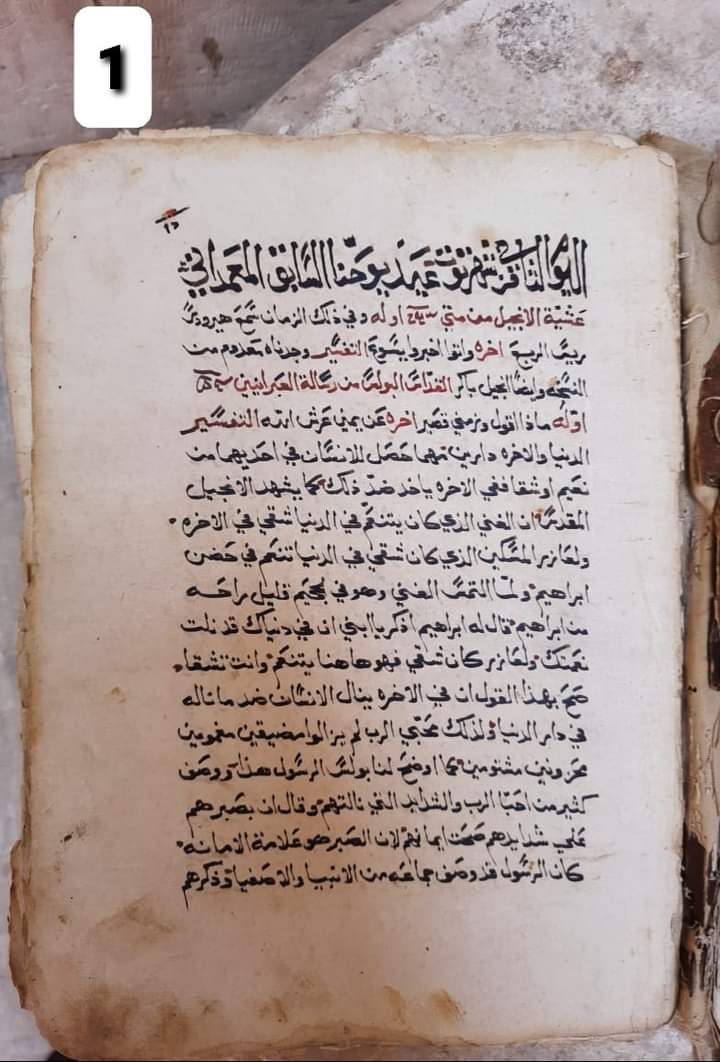 1
١٥
اليوم الثاني من شهر توت عيد يوحنا السابق المعمداني
عشية الانجيل من متي اوله وفي ذلك الزمان سمع هيرودس
رييس الربع اخره واتوا اخبروا يسوع التفسير وجدناه معدوم من
النسخه وايضا انجيل باكر القداس البولس من رسالة العبرانيين
اوله ماذا اقول وزمني قصير اخره عن يمين عرش الله التفسير
الدنيا والاخره دارين مهما حصل للانسان في احديهما من
نعيم او شقا ففي الاخره ياخد ضد ذلك كما يشهد الانجيل
المقدس ان الغني الذي كان يتنعم في الدنيا شقي في الاخره
ولعازر المسكين الذي كان شقي في الدنيا تنعم في حضن
ابراهيم ولما التمس الغني وهو في الجحيم قليل راحه
من ابراهيم قال له ابراهيم اذكر يا ابني ان في دنياك قد نلت
نعمتك ولعازر كان شقي فهو هاهنا يتنعم وانت تشقا
صح بهذا القول ان في الاخره ينال الانسان ضد ما ناله
في دار الدنيا ولذلك محبي الرب لم يزالوا مضيقين مغمومين
محزونين مشتومين كما اوضح لنا بولس الرسول هذا ووصف
كثير من احبا الرب والشدايد التي نالتهم وقال ان بصبرهم
علي شدايدهم صحت ايمانهم لان الصبر هو علامة الامانه
كان الرسول قد وصف جماعه من الانبيا والاصفيا وذكرهم